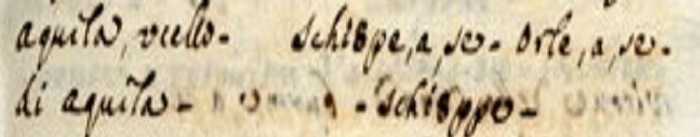 aquila, ucello. schi8pe, a, se. orle, a, se.
di aquila. schi8ppe.